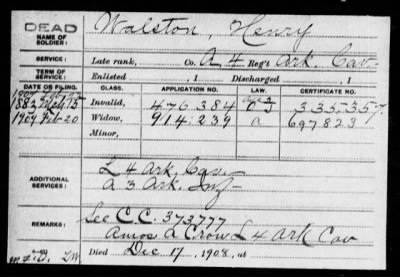 DEAD
NAME OF SOLDIER: Walston, Henry
SERVICE: Late rank, Co. A, 4 Reg't Ark. Cav.
TERM OF SERVICE: Enlisted , 1 Discharged , 1
DATE OF FILING. CLASS. APPLICATION NO. LAW. CERTIFICATE NO.
1883 15 Invalid, 476384 335.357.
1909 Feb 20 Widow, 914.239 a 697823
Minor,
ADDITIONAL SERVICES: L 4 Ark. Cav.
a 3 Ark. Inf
REMARKS: See C.C. 373777
Amos A Crow L 4 Ark Cav
Died Dec 17, 1908, at